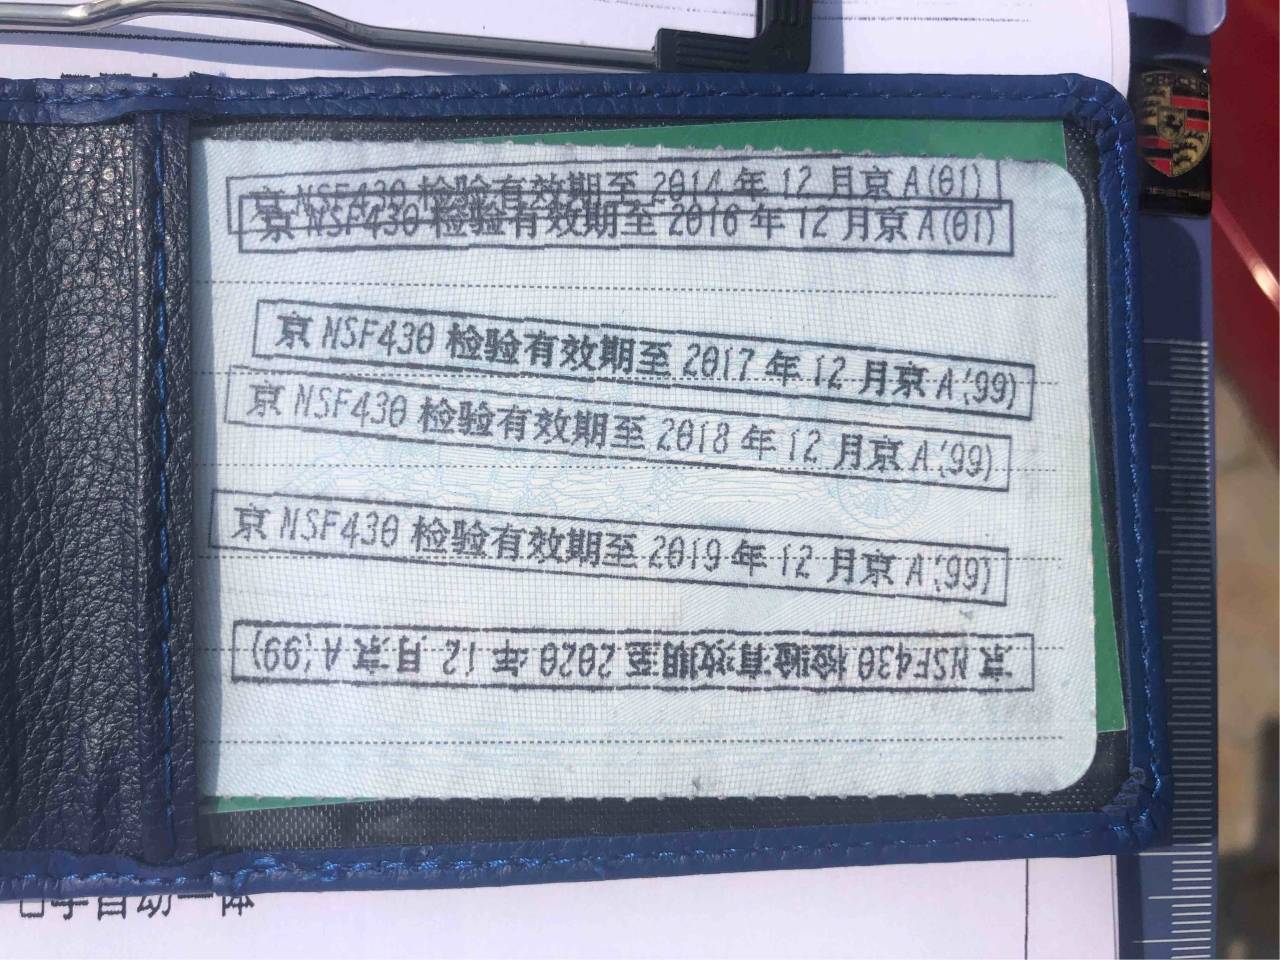 京NSF430 检验有效期至 2014 年 12 月京 A(01)
京NSF430 检验有效期至 2016 年 12 月京 A(01)
京NSF430 检验有效期至 2017 年 12 月京 A(99)
京NSF430 检验有效期至 2018 年 12 月京 A(99)
京NSF430 检验有效期至 2019 年 12 月京 A(99)
京NSF430 检验有效期至 2020 年 12 月京 A(99)
PORSCHE
自动一体